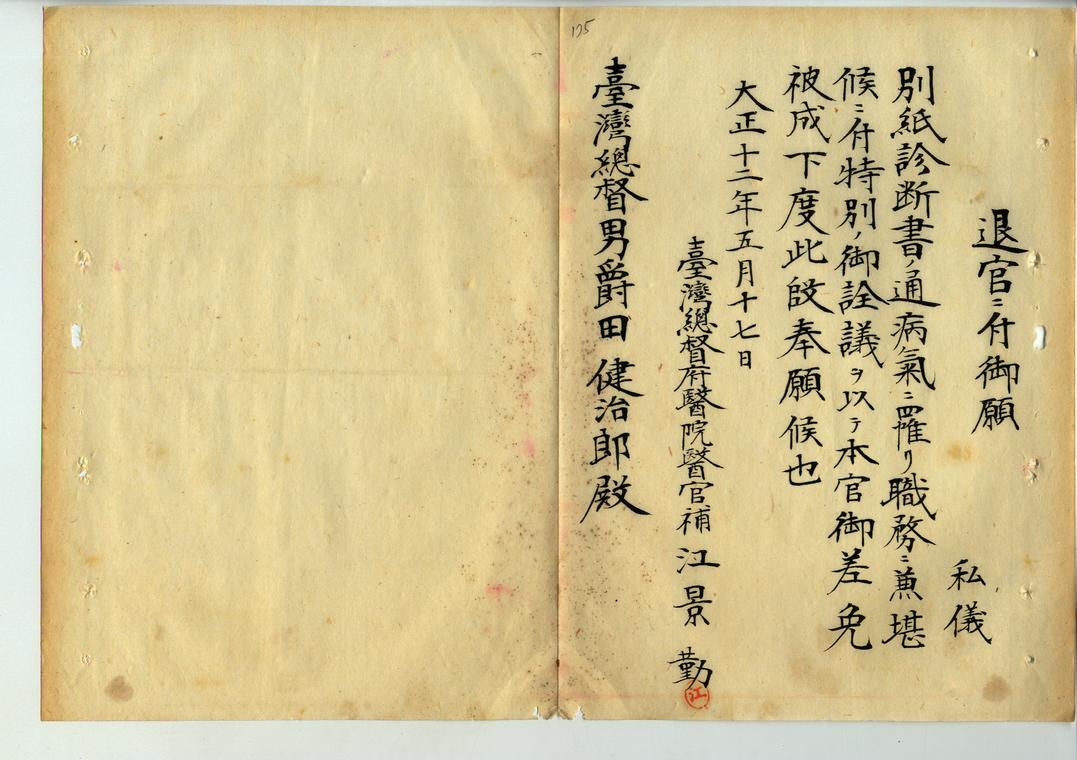 125
退官ニ付御願
私儀
別紙診断書ノ通病氣ニ罹リ職務ニ兼堪
候ニ付特別ノ御詮議ヲ以テ本官御差免
被成下度此段奉願候也
大正十二年五月十七日
臺灣總督府醫院醫官補江景勤
江
臺灣總督男爵田健治郎殿